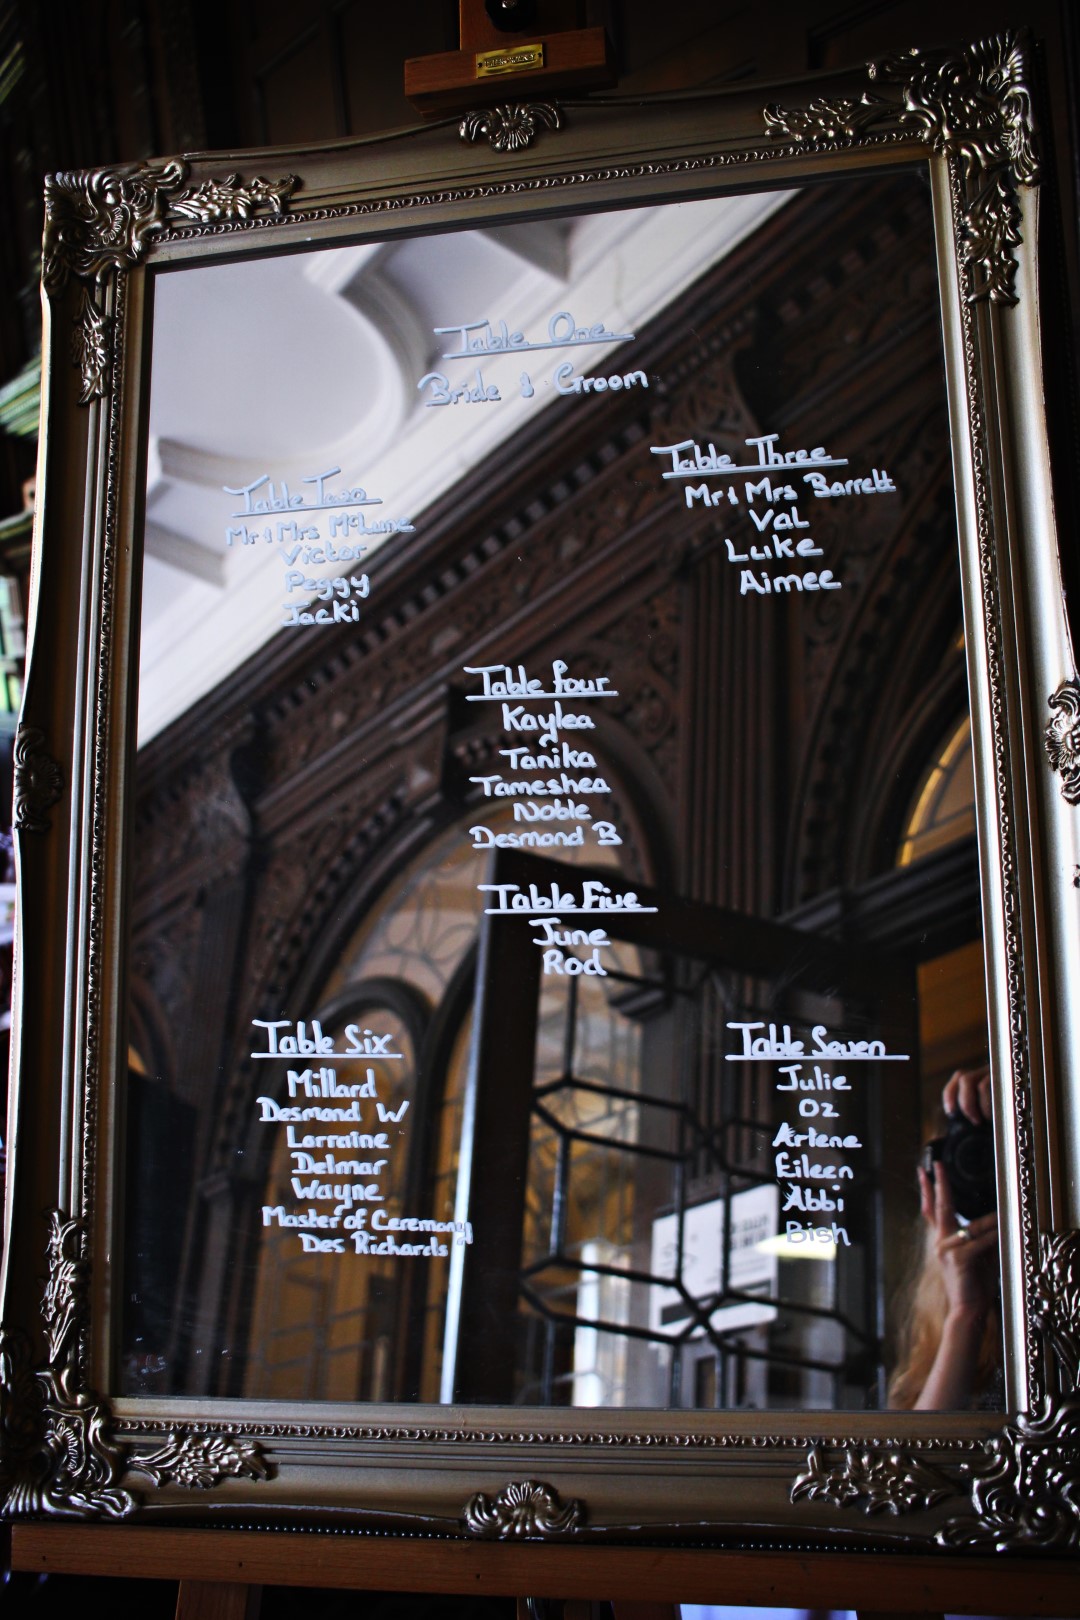 Table One
Bride & Groom
Table Two
Mr & Mrs McLune
Victor
Peggy
Jacki
Table Three
Mr & Mrs Barrett
Val
Luke
Aimee
Table four
Kaylea
Tanika
Tameshea
Noble
Desmond B
Table Five
June
Rod
Table Six
Millard
Desmond W
Lorraine
Delmar
Wayne
Master of Ceremony
Des Richards
Table Seven
Julie
Oz
Arlene
Eileen
Abbi
Bish